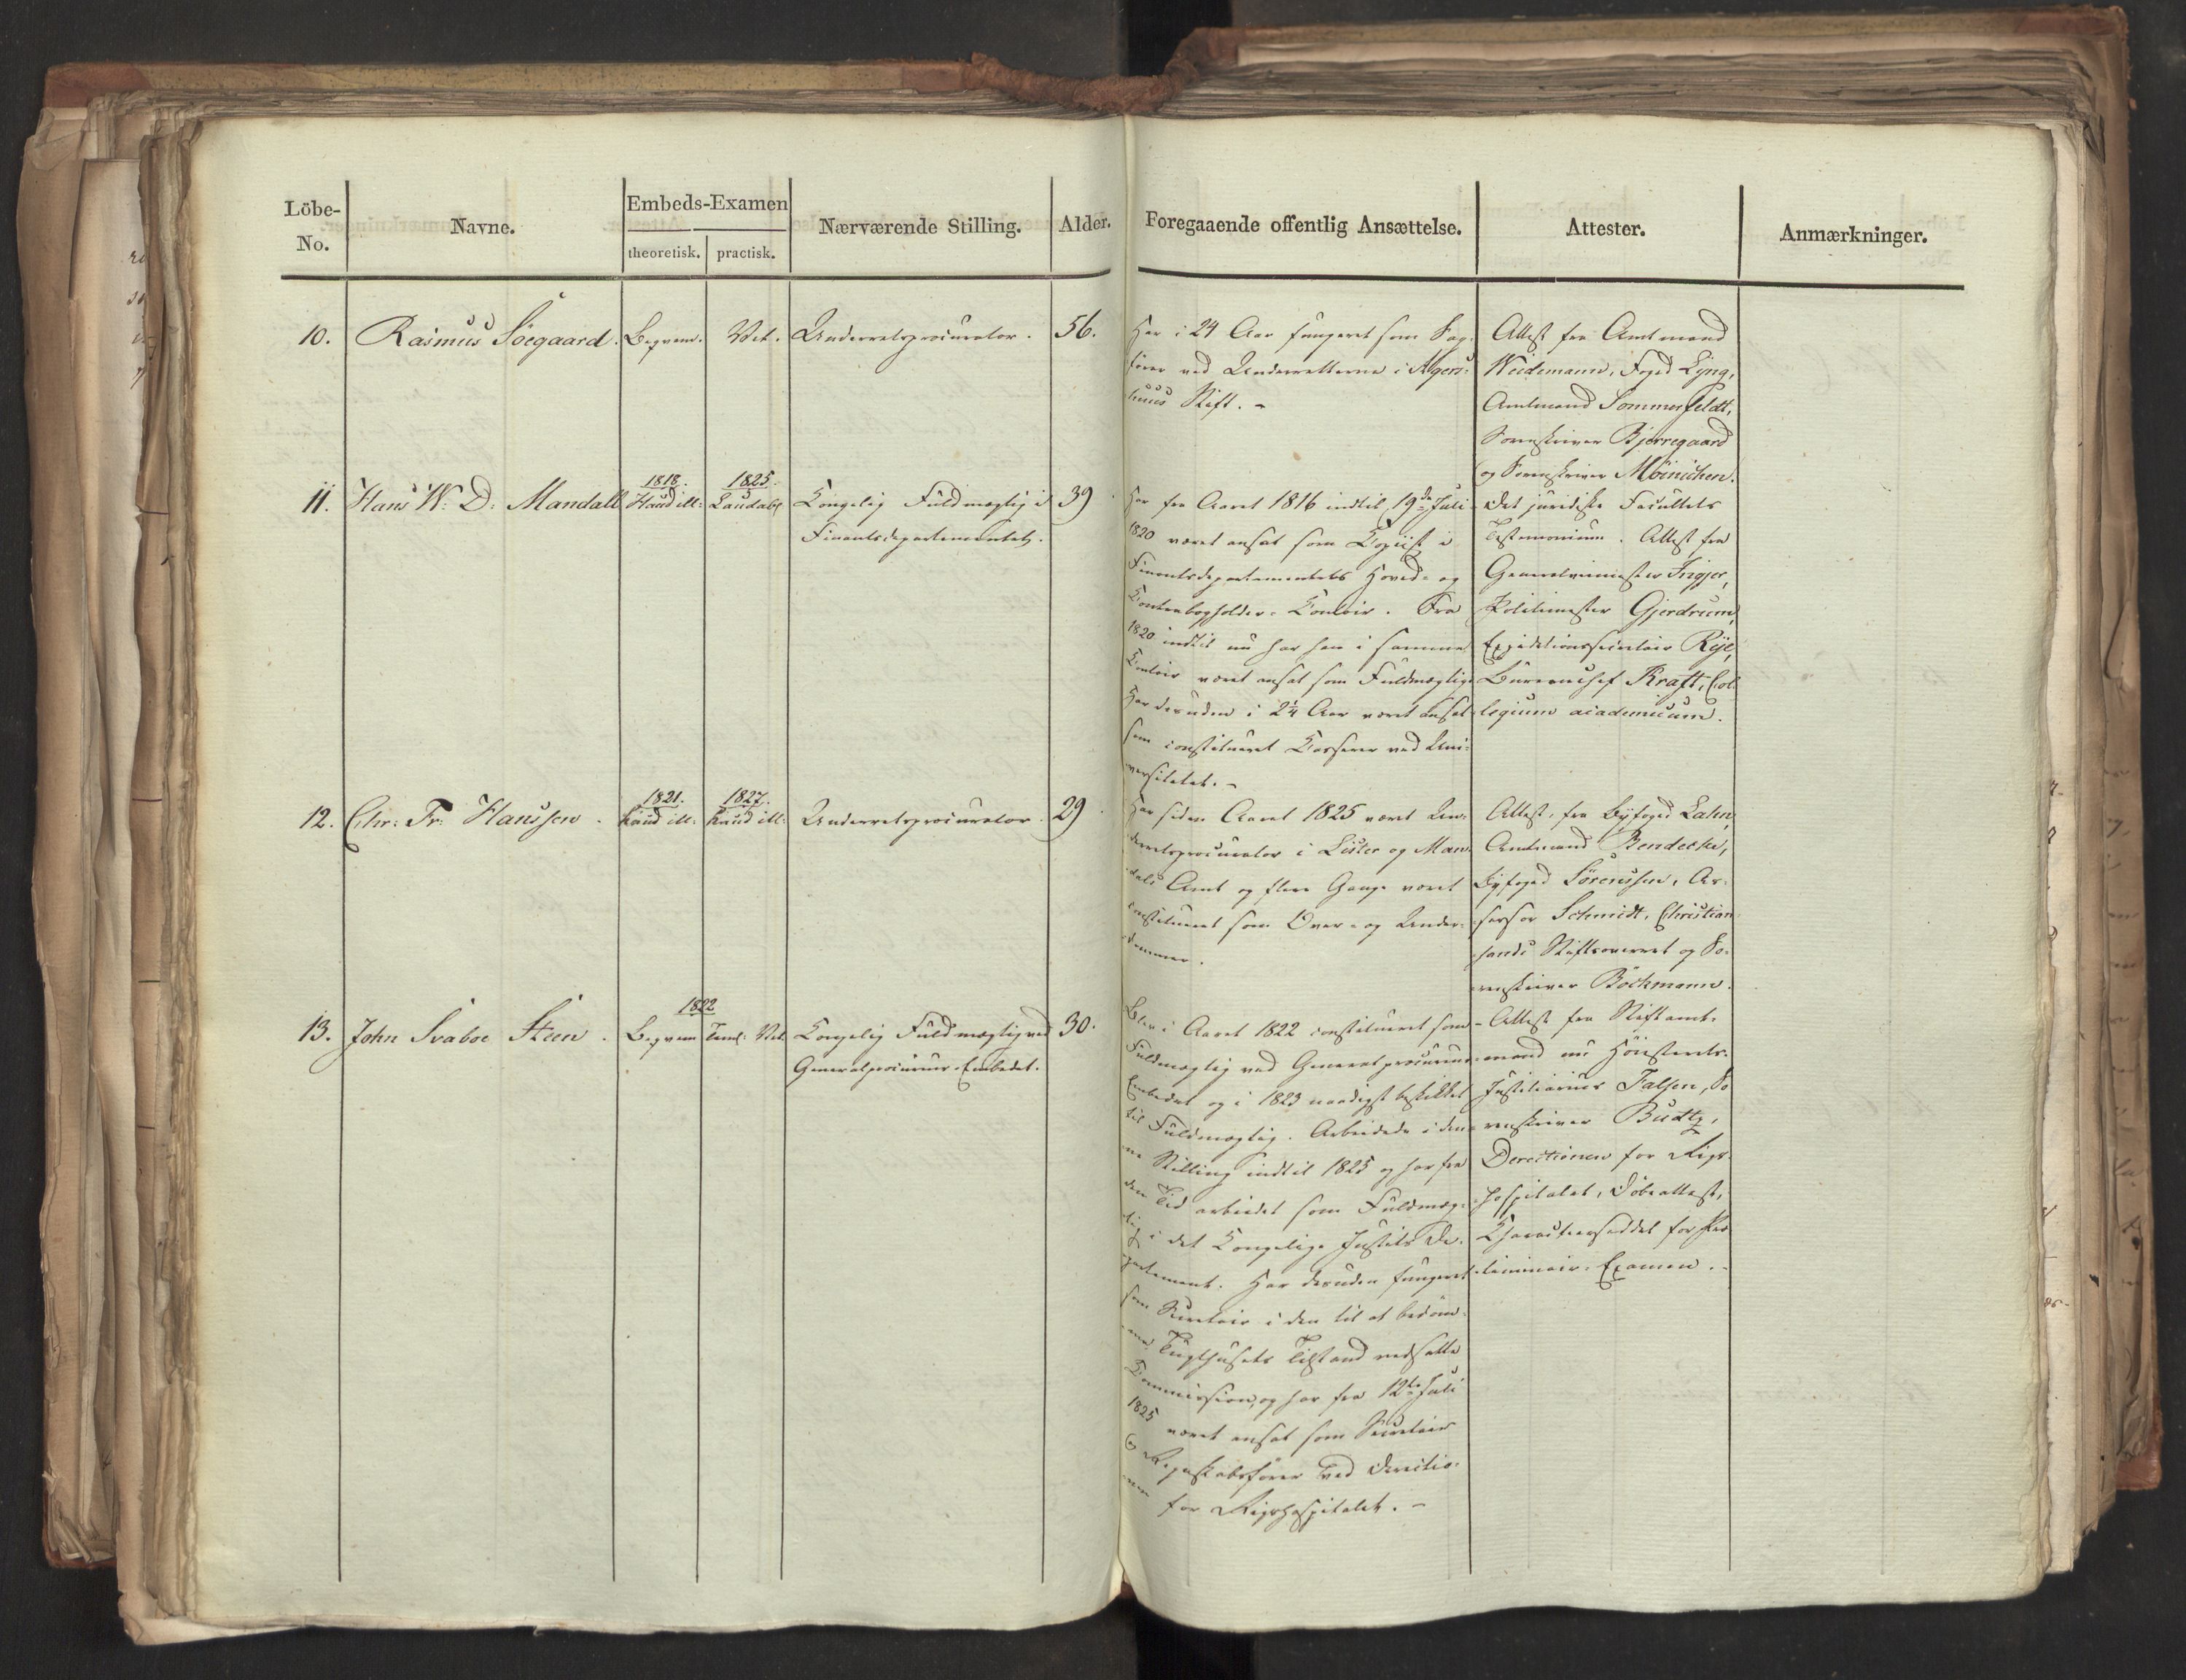 Löbe-
No.
Navne.
Embeds-Examen
theoretisk.
practisk.
Nærværende Stilling.
Alder.
Foregaaende offentlig Ansættelse.
Attester.
Anmærkninger.
10.
Rasmus Söegaard.
Beqvem.
Vel.
Underretsprocurator.
56.
Har i 24 Aar fungeret som Sag-
förer ved Underretterne i Agers-
huus Stift. -
Attest fra Amtmand
Weidemann, Foged Lyng,
Amtmand Sommerfeldt,
Sorenskriver Bjerregaard
og Sorenskriver Möinichen.
11.
Hans W. D. Mandall
1818.
Haud ill:
1825.
Laudabl
Kongelig Fuldmægtig i
Finantsdepartementet.
39
Har fra Aaret 1816 indtil 19de Juli
1820 været ansat som Copiist i
Finantsdepartementets Hoved- og
Contrabogholder-Contoir. Fra
1820 indtil nu har han i samme
Contoir været ansat som Fuldmægtig.
Har desuden i 2¼ Aar været ansat
som constitueret Casserer ved Uni-
versitetet. -
Det juridiske Facultets
Testemonium. Attest fra
Generalveimester Ingjer,
Politimester Gjerdrum,
Expeditionssecretair Rye,
Bureauchef Kraft, Col-
legium academicum.
12.
Chr: Fr: Hanssen.
1821.
haud ill:
1827.
haud ill:
Underretsprocurator.
29
Har siden Aaret 1825 været Un-
derretsprocurator i Lister og Man-
dals Amt og flere Gange været
constitueret som Over- og Under-
dommer.
Attest fra Byfoged
Amtmand Bendeche,
Byfoged Sörenssen, As-
sessor Schmidt, Christian-
sands Stiftsoverret og So-
renskriver Böckmann.
13.
John Svaboe Steen.
1822
Beqvem Teml: Vel.
Kongelig Fuldmægtig ved
Generalprocureur-Embedet.
30.
Blev i Aaret 1822 constitueret som
Fuldmægtig ved Generalprocureur-
Embedet og i 1823 naadigst beskikket
til Fuldmægtig. Arbeidede i den-
ne Stilling indtil 1825 og har fra
den Tid arbeidet som Fuldmæg-
tig i det Kongelige Justits De-
partement. Har desuden fungeret
som Secretair i den til at bedöm-
me Tugthusets Tilstand nedsatte
Commission, og har fra 12te Juli
1825 været ansat som Secretair
& Regnskabsförer ved Directio-
nen for Rigshospitalet. -
- Attest fra Stiftamt-
mand nu Höiesterets-
Justitiarius Falsen, So-
renskriver Budtz,
Directionen for Rigs-
hospitalet, Döbeattest,
Characteerseddel for Præ-
liminair-Examen. -